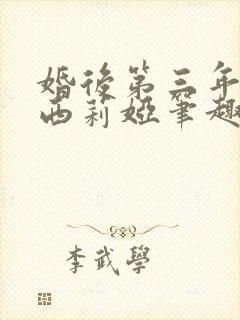 婚後第三年
西莉婭筆趣
李武學